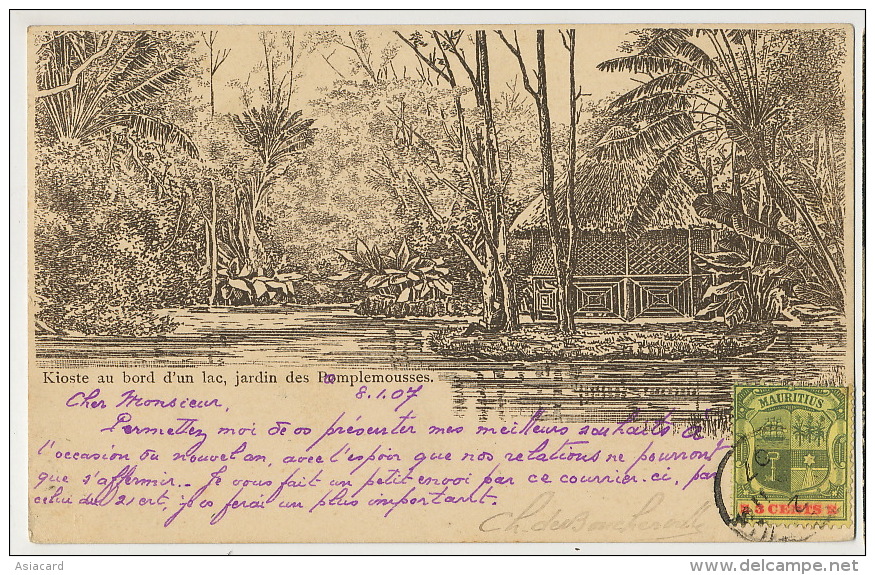 Kioste au bord d'un lac, jardin des Pamplemousses.
8.1.07
Cher Monsieur,
Permettez moi de vs présenter mes meilleurs souhaits à
l'occasion du nouvel an, avec l'espoir que nos relations ne pourront
que s'affermir._ Je vous fait un petit envoi par ce courrier.ci, par
celui du 21 crt, je vs ferai un plus important.
MAURITIUS
3 CENTS
Asiacard
www.delcampe.net